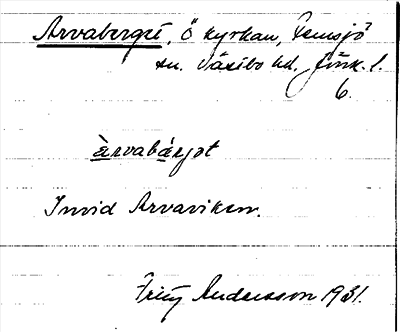 Arvaberget, Ö kyrkan, Femsjö
sn. Västbo hd. Jönk. l.
6.
àrvabárjet
Invid Arvaviken.
Fritz Andersson 1931.